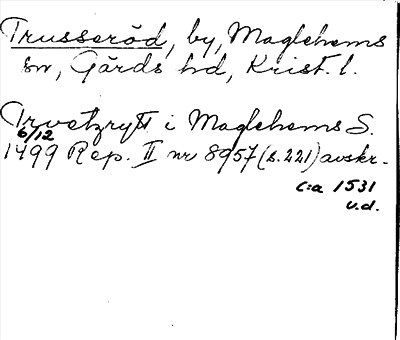 Trusseröd, by, Maglehems
sn, Gärds hd, Krist. l.
Trvetzrytt i Maglehems S.
6/12
1499 Rep. II nr 8957 (s. 221) avskr.
c:a 1531
u.d.